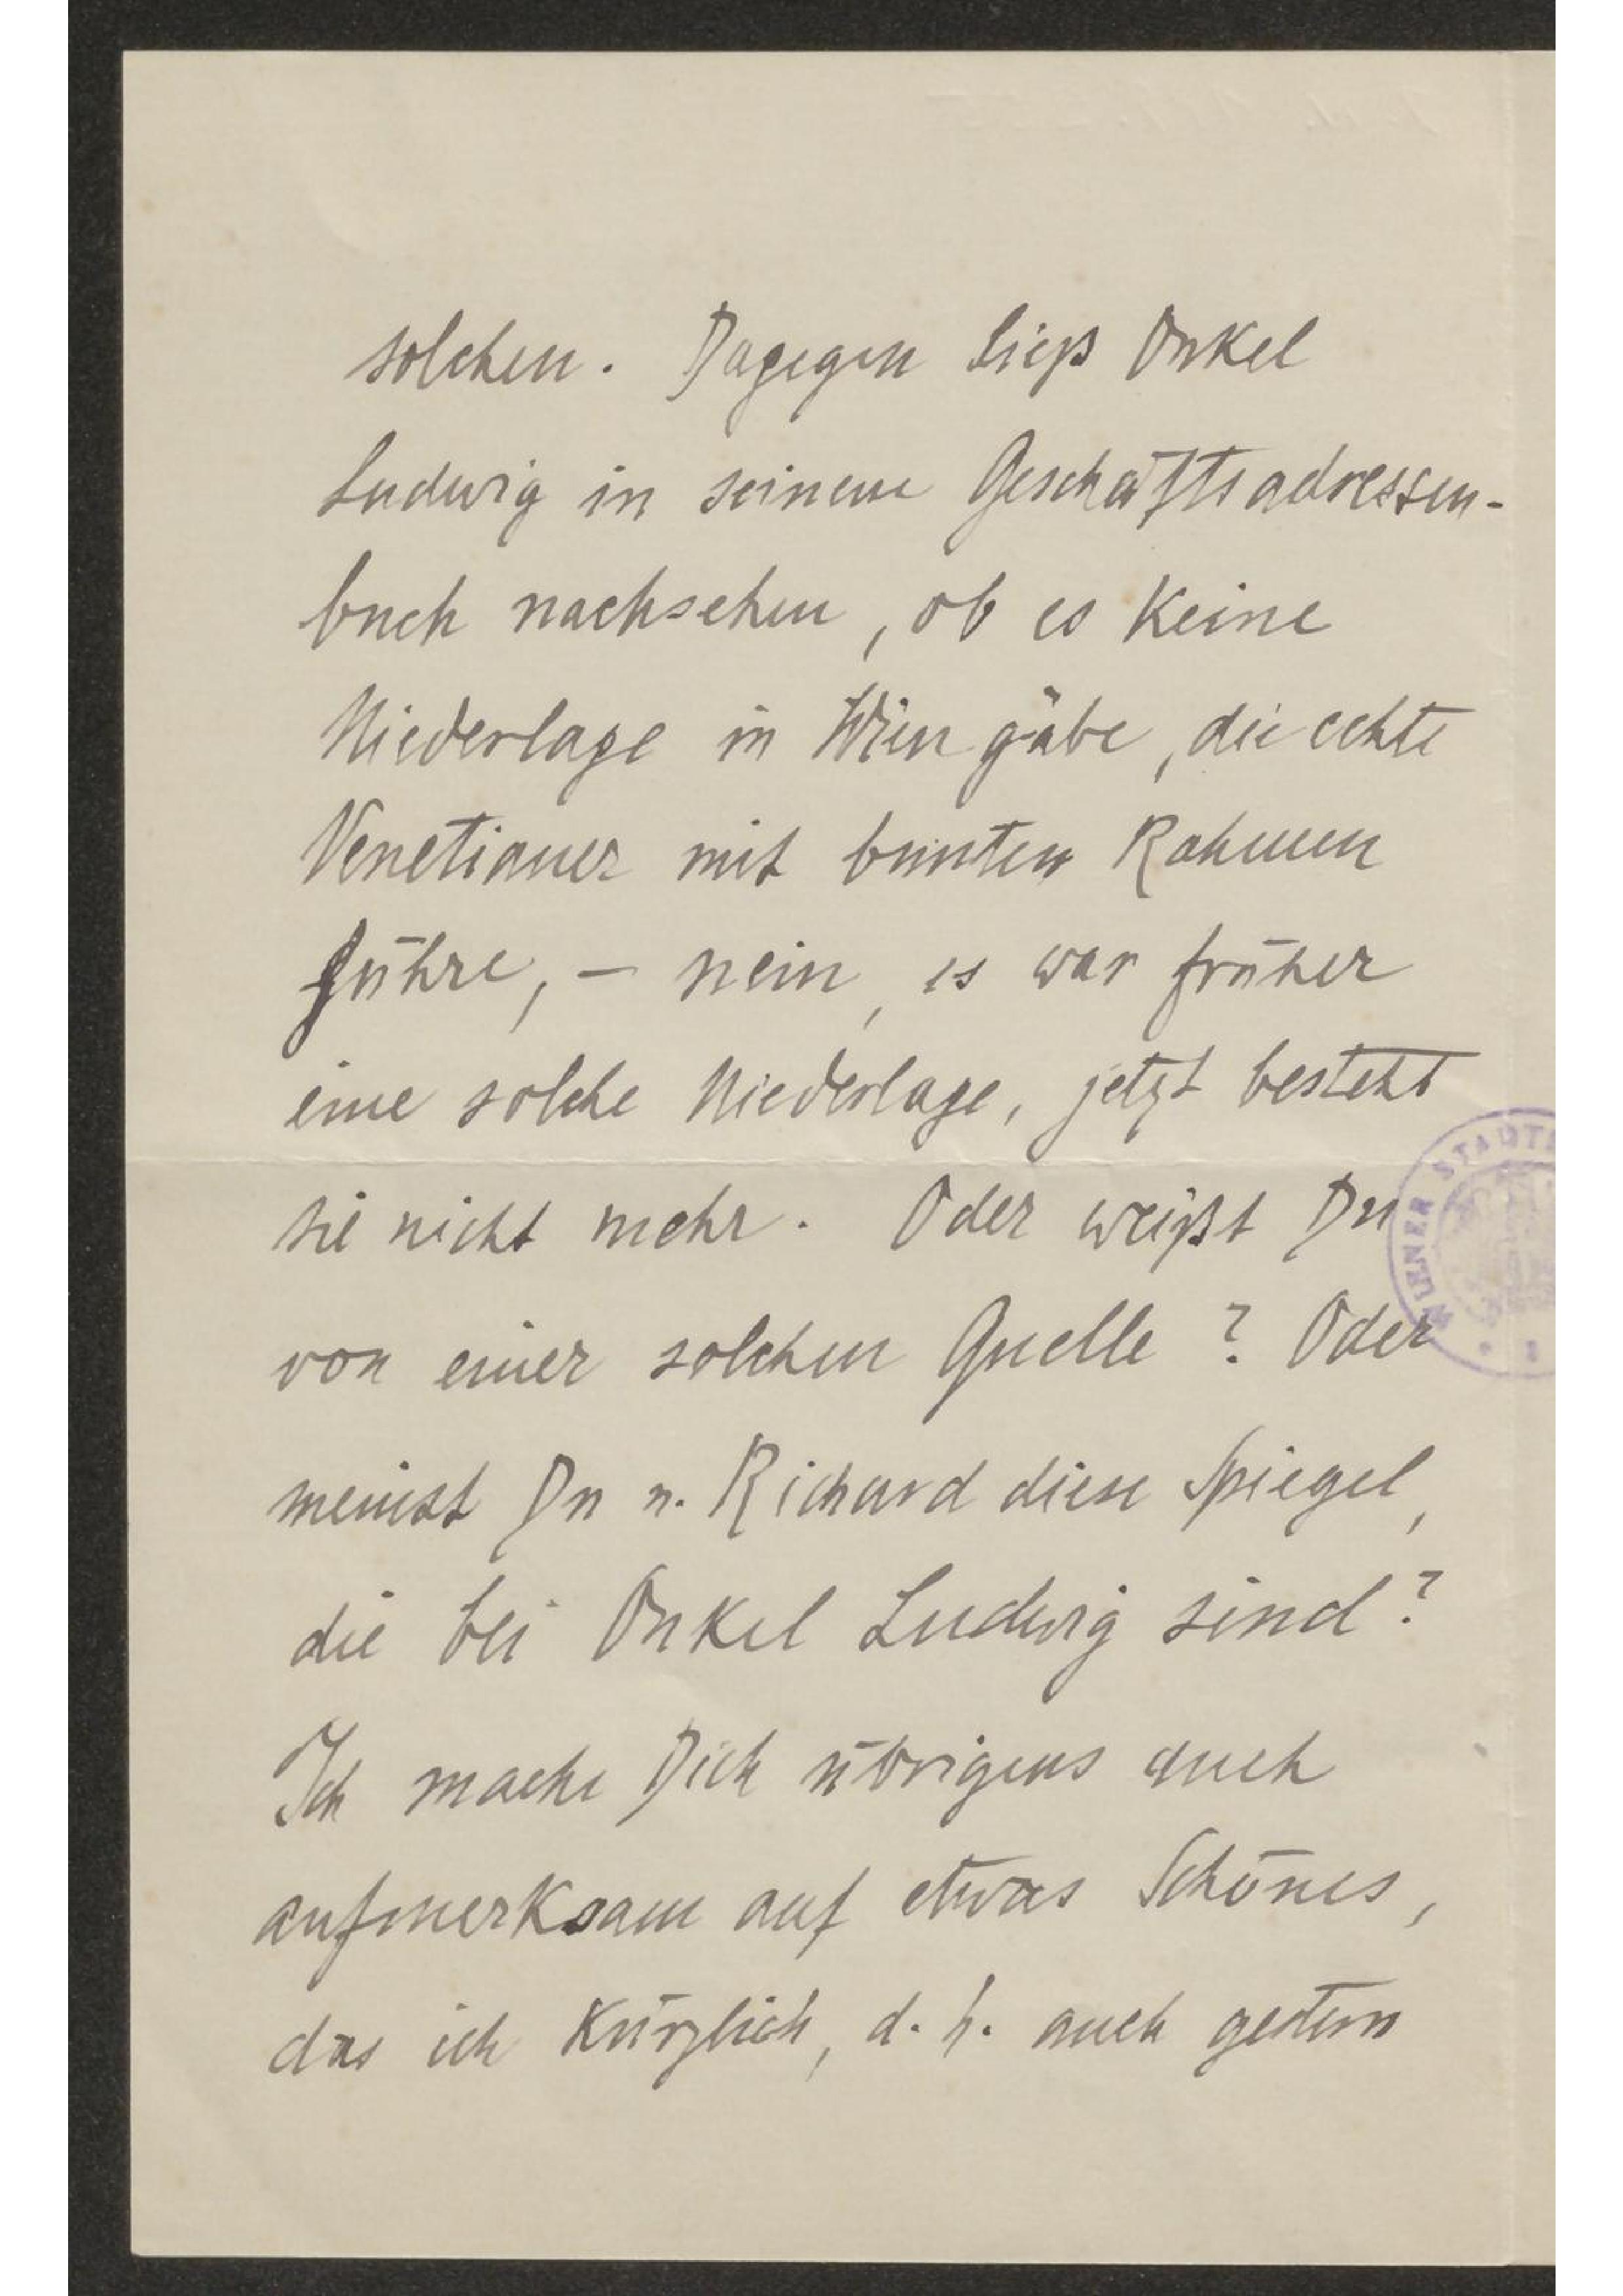 solchen. Dagegen liess Onkel
Ludwig in seinem Geschäftsadressen-
buch nachsehen, ob es keine
Niederlage in Wien gäbe, die echte
Venetianer mit bunten Rahmen
führe, – nein, es war früher
eine solche Niederlage, jetzt besteht
sie nicht mehr. Oder weißt Du
von einer solchen Quelle? Oder
meinst Du u. Richard diese Spiegel,
die bei Onkel Ludwig sind?
Ich mache Dich übrigens auch
aufmerksam auf etwas Schönes,
das ich kürzlich, d. h. auch gestern
WIENER STADT